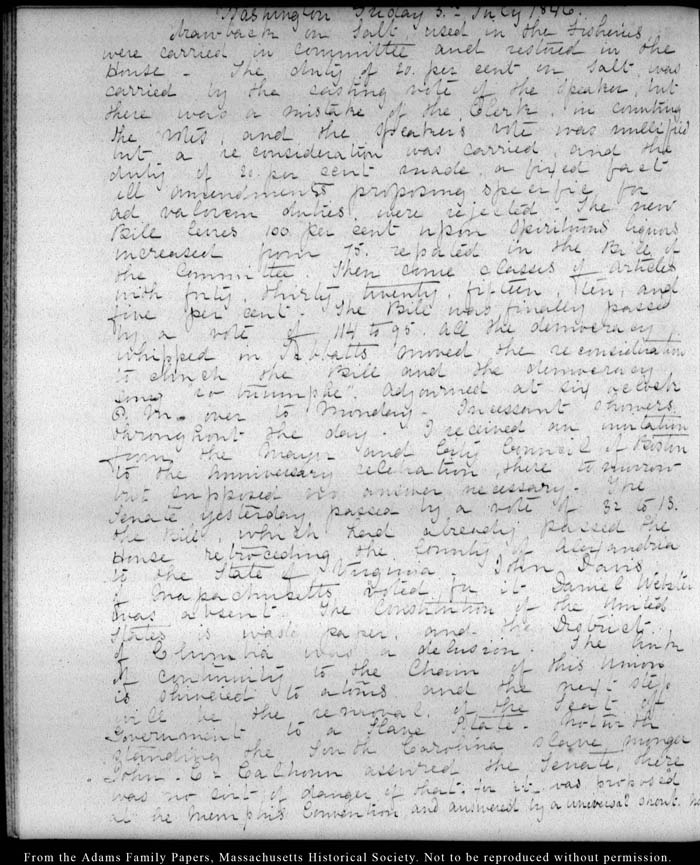 Washington Friday 3. July 1846.
drawback on Salt, used in the Fisheries,
were carried in committee and restored in the
House - The duty of 20. per cent on Salt was
carried by the casting vote of the Speaker, but
there was a mistake of the Clerk in counting
the votes, and the Speakers vote was nullified
but a reconsideration was carried, and the
duty of 20. per cent made, a fixed fact
all amendments proposing specific for
ad valorem duties, were rejected. The new
Bill levies 100 per cent upon Spirituous liquors
increased from 75. reported in the Bill of
the Committee. Then come classes of articles
with forty, thirty, twenty, fifteen, ten, and
five per cent. The Bill was finally passed
by a vote of 114 to 95. all the democracy
whipped in Tibbatts moved, the reconsideration
to clinch the Bill and the democracy
sung Io triumphe. Adjourned at six o'clock
P.M. over to Monday - Incessant showers
throughout the day. I received an invitation
from the Mayor and City Council of Boston
to the anniversary celebration, there tomorrow
but supposed no answer necessary. The
Senate yesterday passed by a vote of 32 to 15.
the Bill, which had already passed the
House retroceding the County of Alexandria
to the State of Virginia. John Davis
of Massachusetts voted for it Daniel Webster
was absent. The Constitution of the United
States is waste paper, and the District
of Columbia was a delusion. The link
of continuity to the Chain of this Union
is shivered to atoms and the next step
will be the removal of the Seat of
Government to a Slave State - notwith
standing the South Carolina slave monger
John. C. Calhoun assured the Senate, there
was no sort of danger of that, for it was proposed
at the Memphis Convention, and answered by a universal shout. no
From the Adams Family Papers, Massachusetts Historical Society. Not to be reproduced without permission.